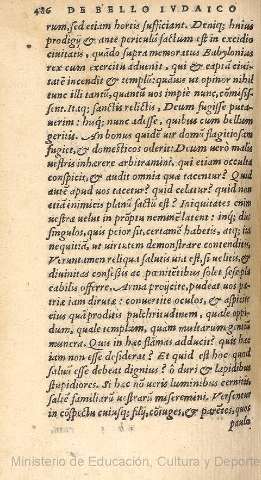 486 DE BELLO IVDAICO
rum, sed etiam hortis sufficiant. Deniq; huius
prodigy & ante periculũ factum est in excidio
ciuitatis, quãdo supra memoratus Babylonius
rex cum exercitu aduenit, qui & captã ciuita-
tẽ incendit & templũ: quãuis ut opinor nihil
tunc illi tantũ, quantũ uos impiè nunc,
sent. Itaq; sanctis relictis, Deum fugisse puta-
uerim: nunc adesse, quibus cum bellum
geritis. An bonus quidẽ uir domũ flagitiosam
fugiet, & domesticos oderit: Deum uerò malis
uestris inhærere arbitramini, qui etiam occulta
conspicit, & audit omnia quæ tacentur? Quid
autẽ apud uos tacetur? quid celatur? quid non
etiã inimicis planũ factũ est? Iniquitates enim
uestræ uelut in propẽtu nemini latent: inq; dies
singulos, quis peior sit, certamẽ habetis, atq; ita
nequitiã, ut uirtutem demonstrare contenditis,
Veruntamen reliqua salutis uia est, si uelitis, &
diuinitas confessis ac pœnitẽtibus solet sese pla
cabilẽ offerre. Arma proijcite, pudeat uos pa-
triæ iam dirutæ: conuertite oculos, & aspicite
eius quã proditis pulchritudinem, quale oppi-
dum, quale templum, quam multarum gentiũ
munera. Quis in hæc flãmas adducit? quis hæc
iam non esse desiderat? Et quid est hoc quod
saluũ esse debeat dignius? ô duri & lapidibus
stupidiores. Si hæc nõ ueris luminibus cernitis,
saltẽ familiarũ uestrarũ miseremini. Versentur
in cõspectu cuiusq; filij, cõiuges, & parẽtes, quos
paulo
Ministerio de Educación, Cultura y Deporte